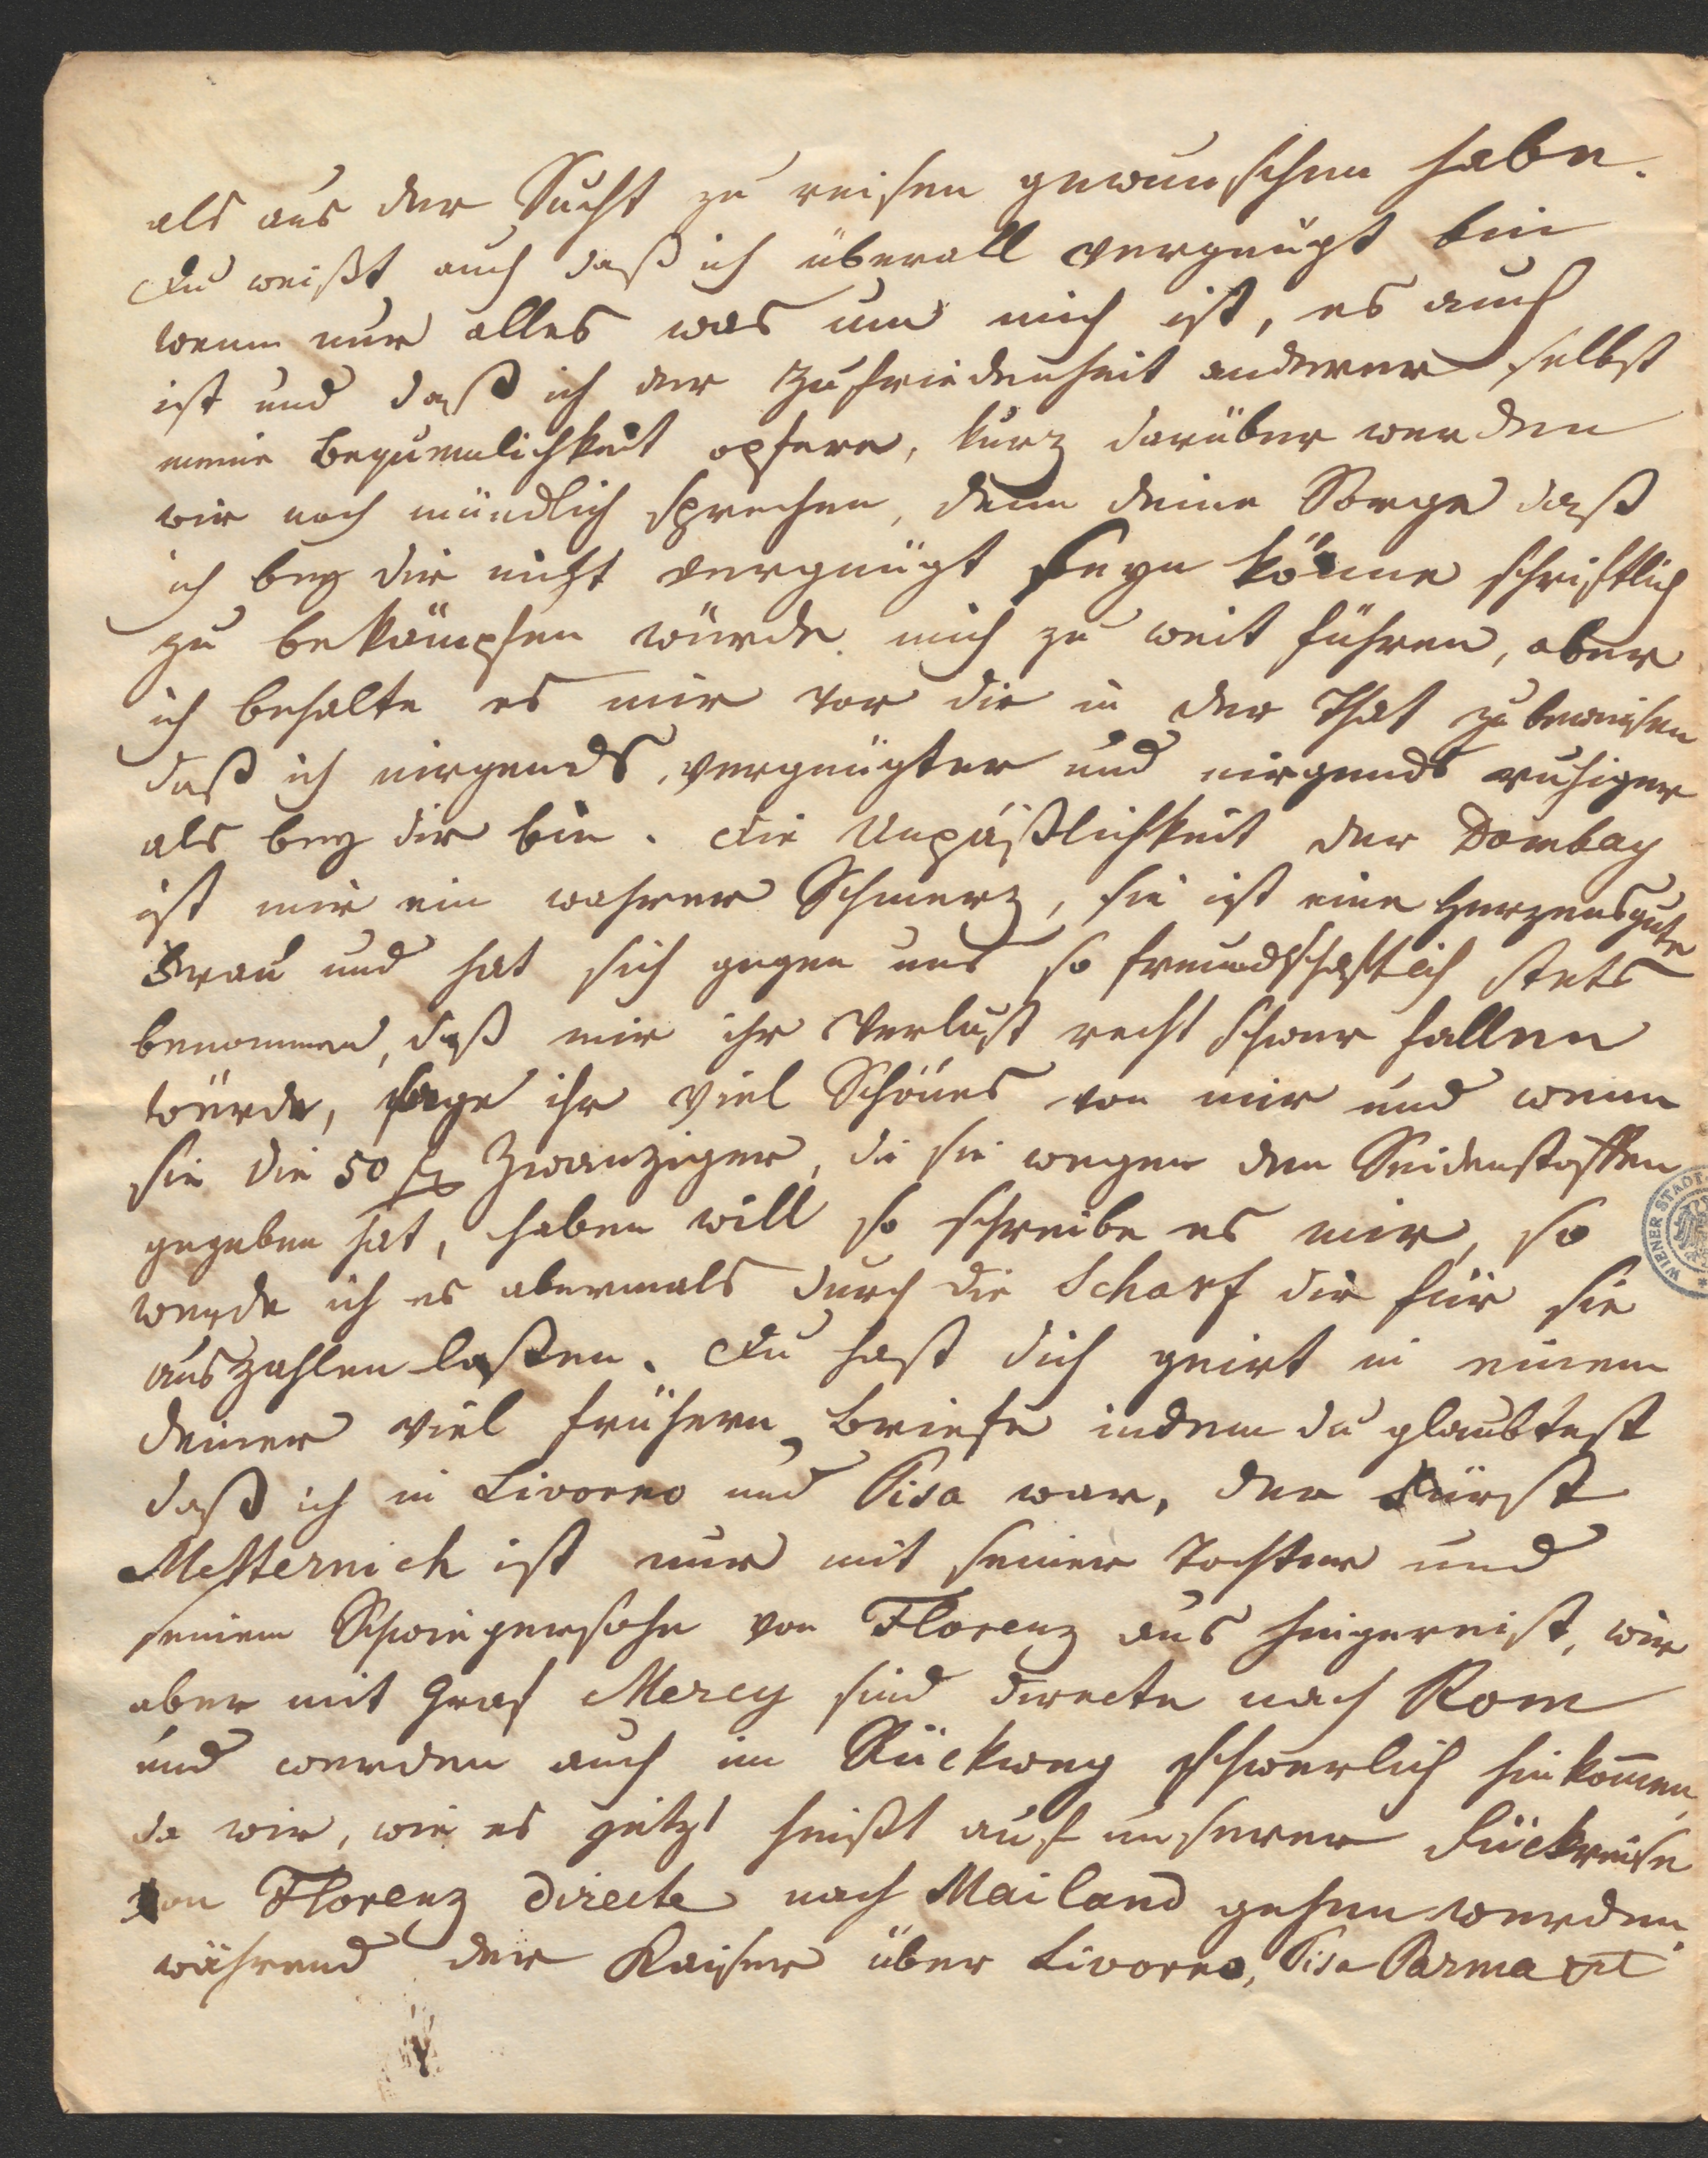 als aus der Sucht zu reisen gewunschen habe.
Du weißt auch daß ich überall vergnügt bin
wenn nur alles was um mich ist, es auch
ist und daß ich der Zufriedenheit anderer selbst
meine Bequemlichkeit opfere, kurz darüber werden
wir noch mündlich sprechen, denn deine Sorge daß
ich bey dir nicht vergnügt seyn könne schriftlich
zu bekämpfen würde mich zu weit führen, aber
ich behalte es mir vor dir in der That zu beweisen
daß ich nirgends, vergnügter und nirgends ruhiger
als bey dir bin. Die Unpäßlichkeit der Dombay
ist mir ein wahrer Schmerz, sie ist eine Herzensgute
Frau und hat sich gegen uns so freundschaftlich stets
benommen, daß mir ihr Verlust recht schwer fallen
würde, sage ihr viel Schönes von mir und wenn
sie die 50 fl Zwanziger, die sie wegen den Seidenstoffen
gegeben hat, haben will so schreibe es mir, so
werde ich es abermals durch die Scharf dir für sie
auszahlen laßen. Du hast dich geirt in einem
deiner viel frühern Briefe indem du glaubtest
daß ich in Livorno und Pisa war, der Fürst
Metternich ist nur mit seiner Tochter und
seinem Schwiegersohn von Florenz aus hingereist, wir
aber mit Graf Mercy sind directe nach Rom
und werden auch im Rückweg schwerlich hinkom̅en,
da wir, wie es jetzt heißt auf unserer Rückreise
von Florenz directe nach Mailand gehen werden,
während der Kaiser über Livorno, Pisa Parma etc
WIENER STADT-